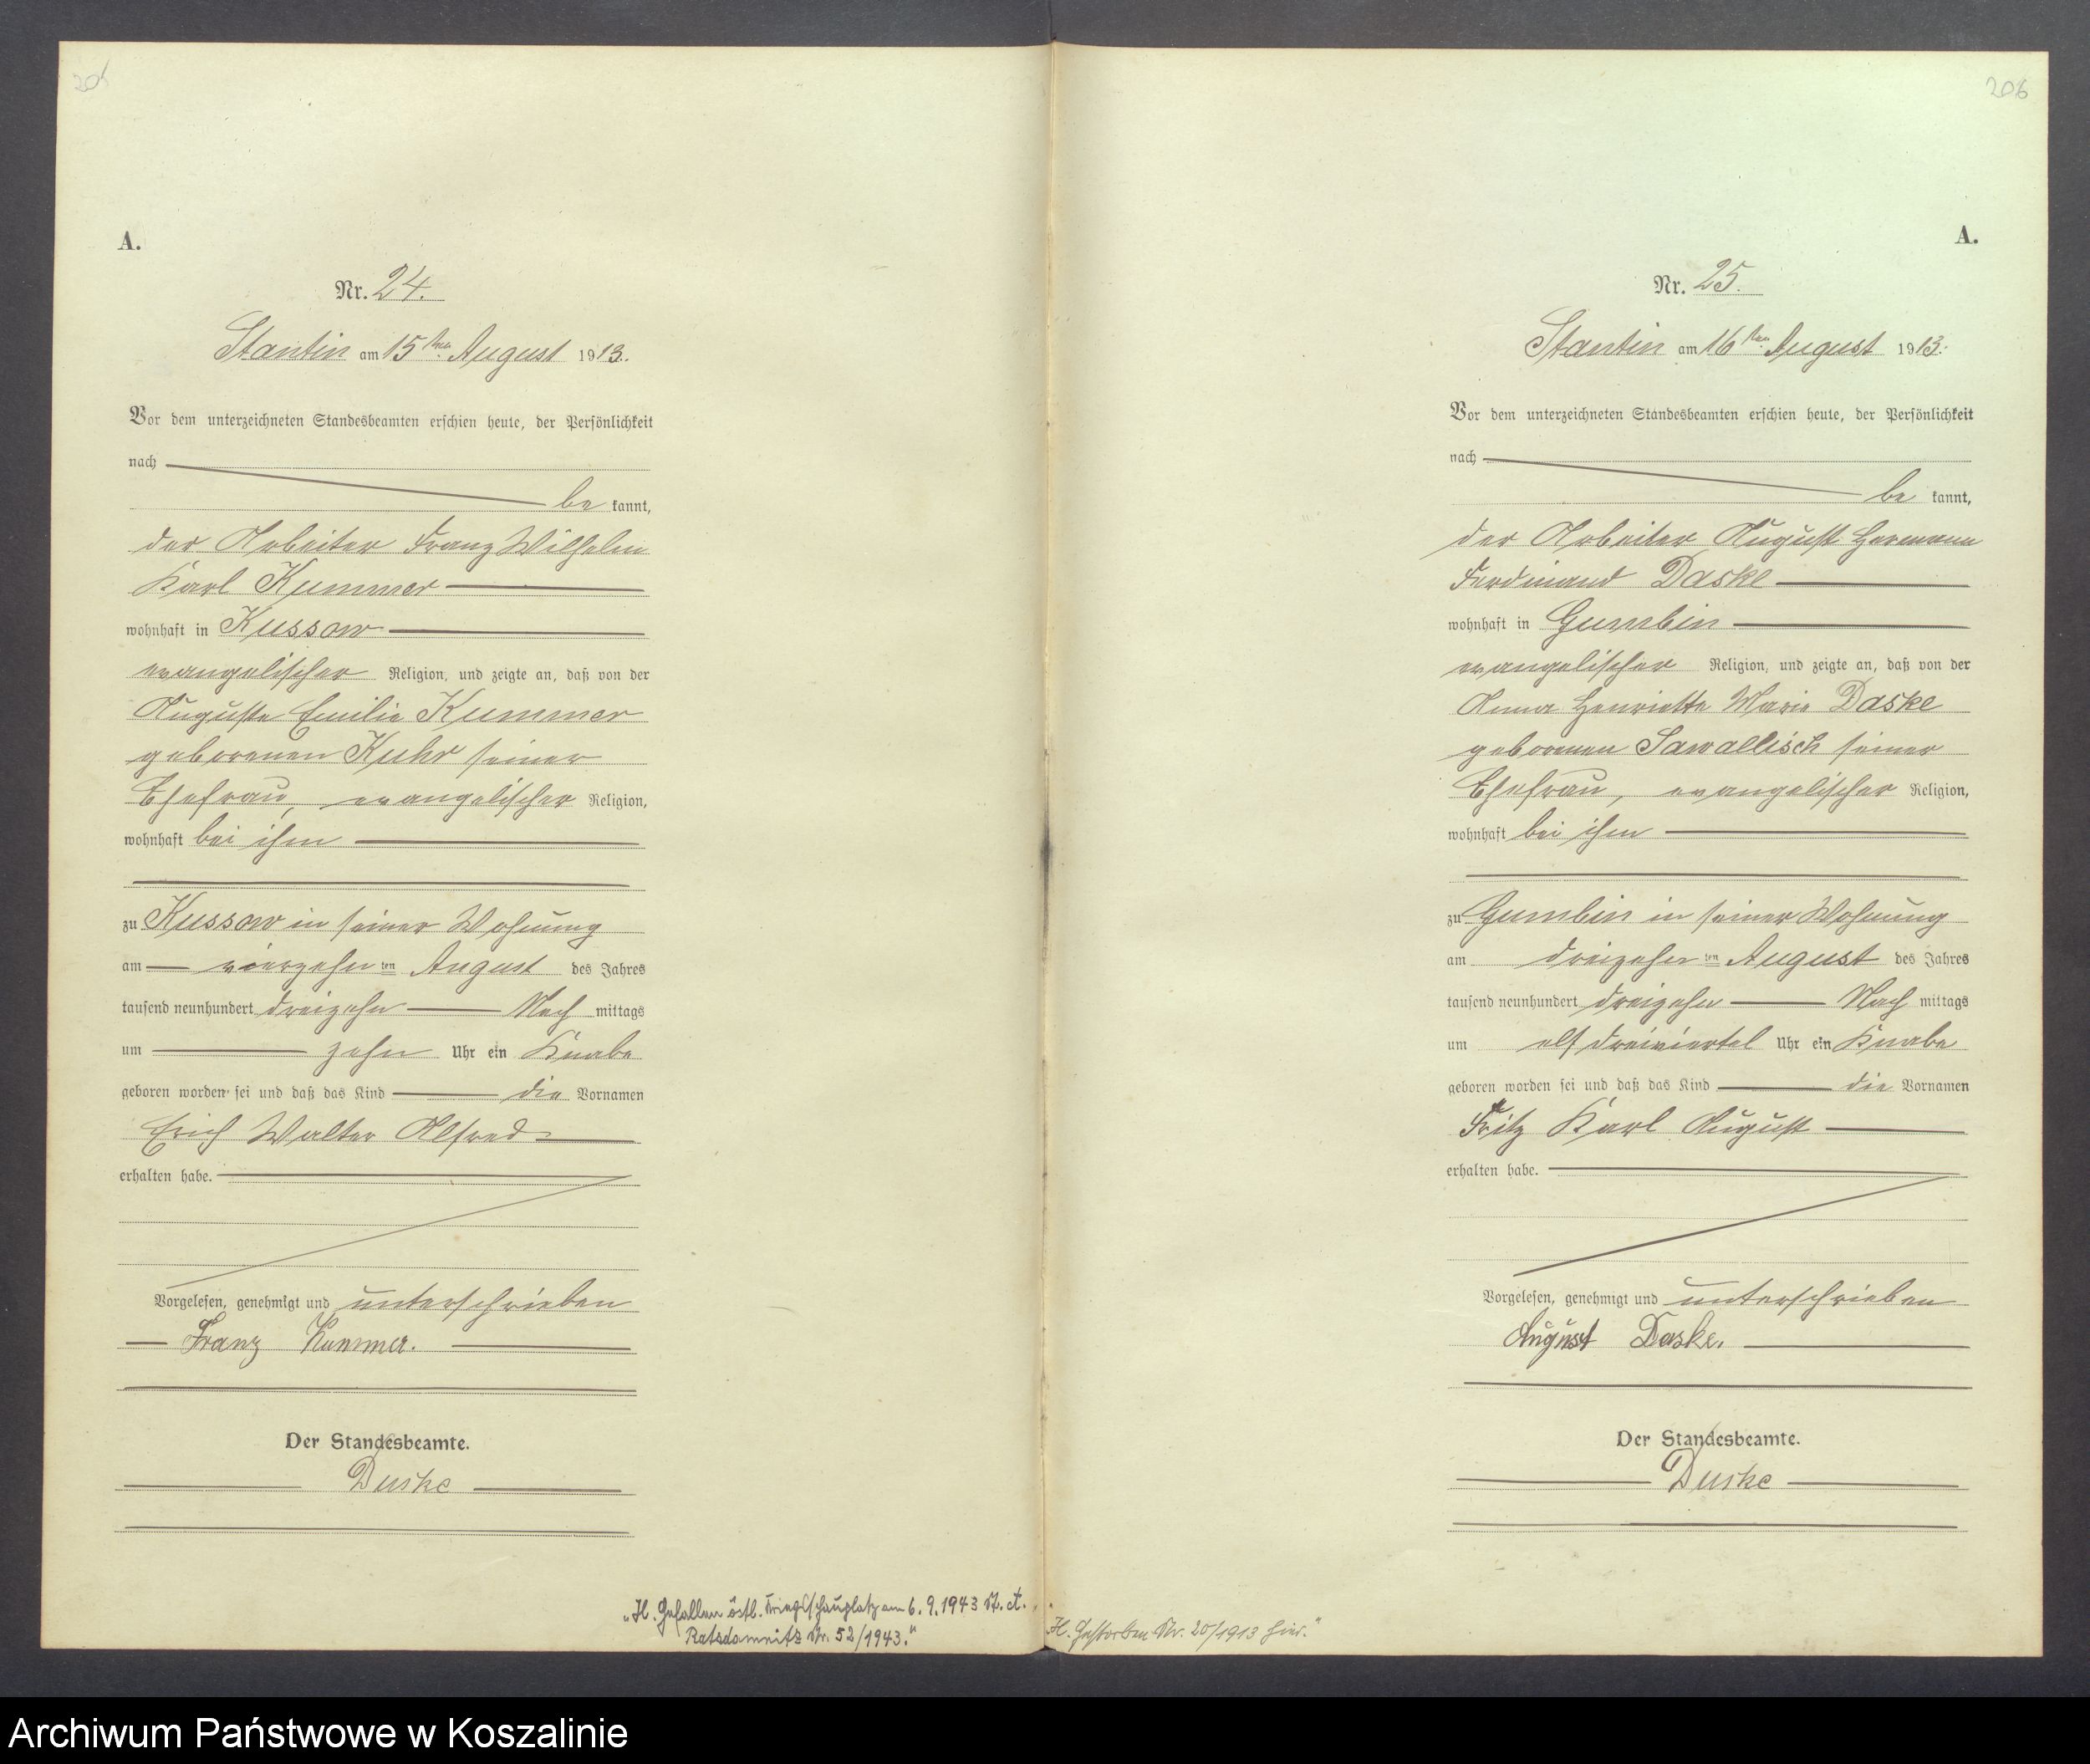 205
A.
Nr. 24.
Stantin am 15ten August 1913.
Vor dem unterzeichneten Standesbeamten erschien heute, der Persönlichkeit
nach
be kannt,
der Arbeiter Franz Wilhelm
Karl Kummer
wohnhaft in Kussow
evangelischer Religion, und zeigte an, daß von der
Auguste Emilie Kummer
geborenen Kuhr seiner
Ehefrau, evangelischer Religion,
wohnhaft bei ihm
zu Kussow in seiner Wohnung
am vierzehn ten August des Jahres
tausend neunhundert dreizehn Nach mittags
um zehn Uhr ein Knabe
geboren worden sei und daß das Kind die Vornamen
Erich Walter Alfred
erhalten habe.
Vorgelesen, genehmigt und unterschrieben
Franz Kummer.
Der Standesbeamte.
Duske
„H. Gefallen östl. Kriegsschauplatz am 6.9.1943 St. A.
Ratsdamnitz Nr. 52/1943."
206
A.
Nr. 25.
Stantin am 16ten August 1913.
Vor dem unterzeichneten Standesbeamten erschien heute, der Persönlichkeit
nach
be kannt,
der Arbeiter August Hermann
Ferdinand Daske
wohnhaft in Gumbin
evangelischer Religion, und zeigte an, daß von der
Anna Henriette Marie Daske
geborenen Sawallisch seiner
Ehefrau, evangelischer Religion,
wohnhaft bei ihm
zu Gumbin in seiner Wohnung
am dreizehn ten August des Jahres
tausend neunhundert dreizehn Nach mittags
um elf dreiviertel Uhr ein Knabe
geboren worden sei und daß das Kind die Vornamen
Fritz Karl August
erhalten habe.
Vorgelesen, genehmigt und unterschrieben
August Daske.
Der Standesbeamte.
Duske
H. Gestorben Nr. 20/1913 hier."
Archiwum Państwowe w Koszalinie